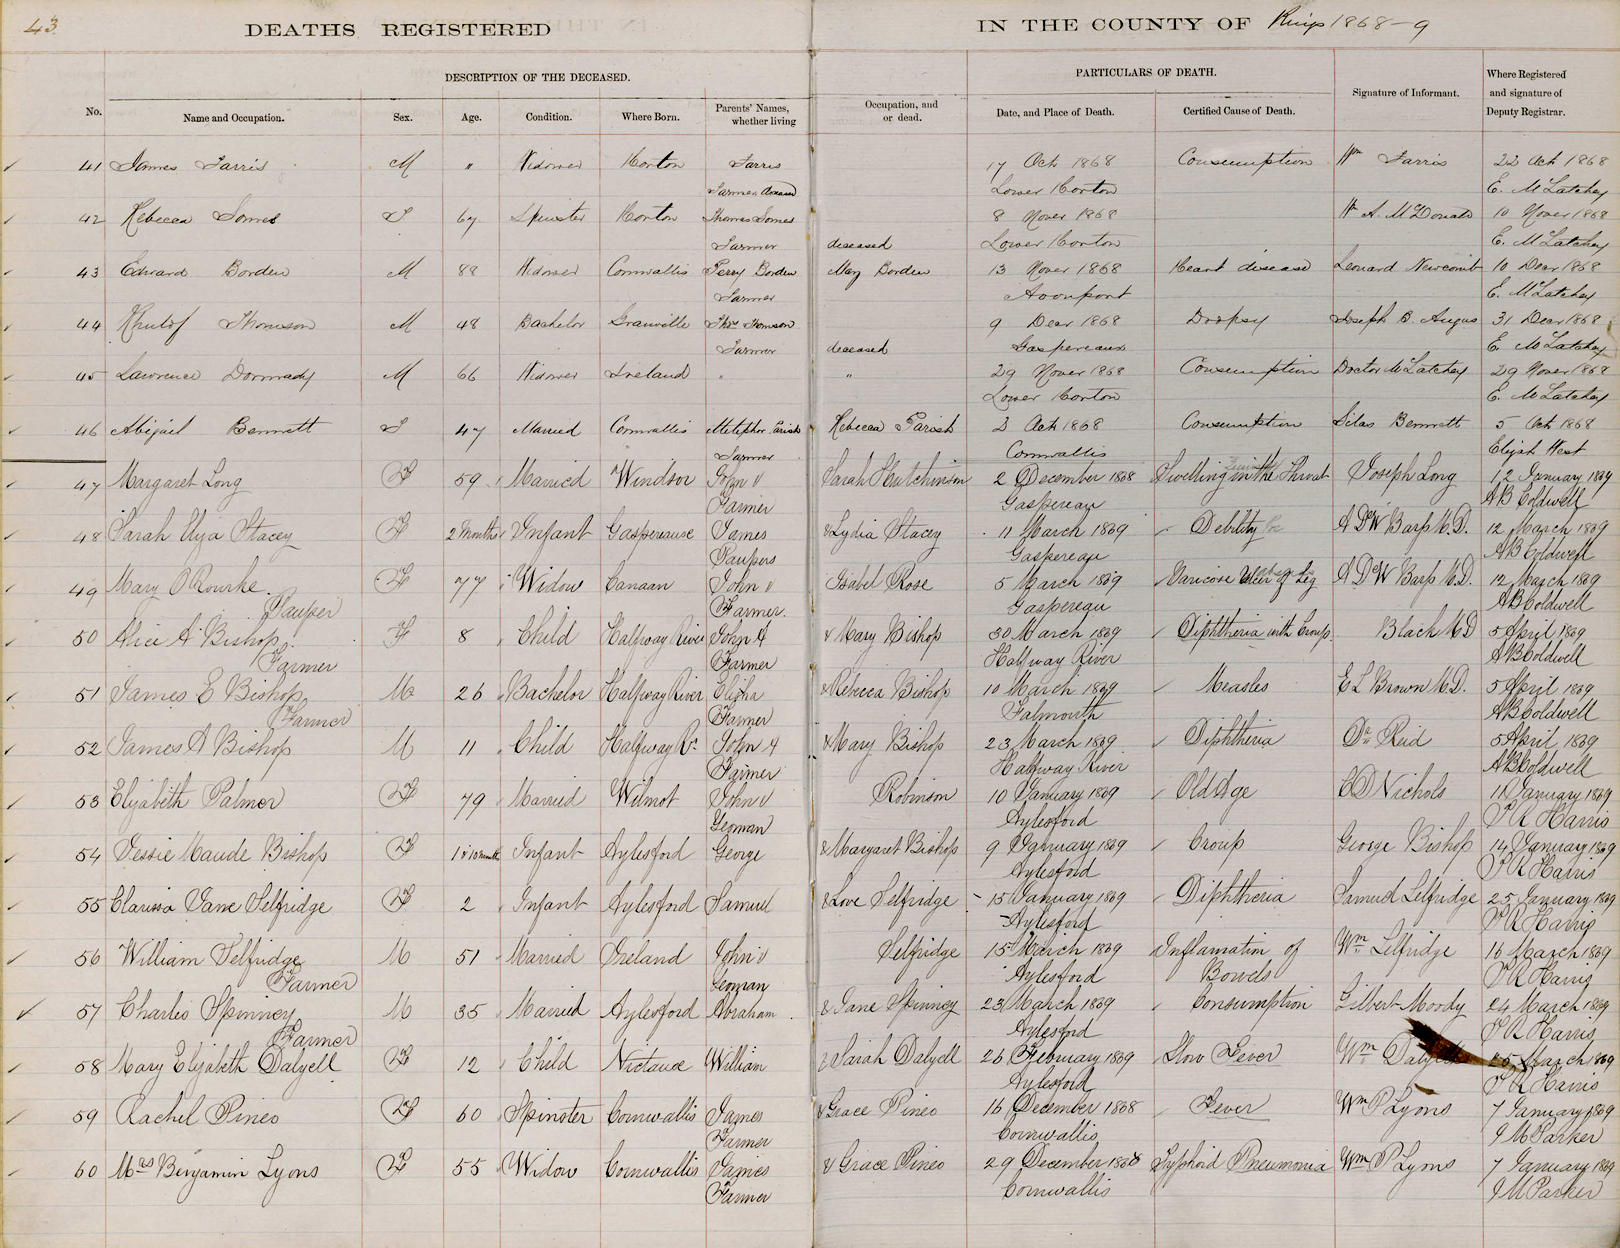 43.
DEATHS REGISTERED IN THE COUNTY OF Kings 1868-9
DESCRIPTION OF THE DECEASED. PARTICULARS OF DEATH.
No. Name and Occupation. Sex. Age. Condition. Where Born. Parents' Names, whether living Occupation, and or dead. Date, and Place of Death. Certified Cause of Death. Signature of Informant. Where Registered and signature of Deputy Registrar.
41 James Farris M " Widower Horton Farris 17 Oct 1868 Consumption Wm Farris 22 Oct 1868
Farmer Deceased Lower Horton E. McLatchey
42 Rebecca Jomes F 67 Spinster Horton Thomas Jomes 8 Nover 1868 W A. McDonald 10 Nover 1868
Farmer deceased Lower Horton E. McLatchey
43 Edward Borden M 88 Widower Cornwallis Perry Borden Mary Borden 13 Nover 1868 Heart disease Leonard Newcomb 10 Decr 1868
Farmer Avonport E. McLatchey
44 Thomson M 48 Bachelor Granville Thos Thomson 9 Decr 1868 Dropsy Joseph B. Angus 31 Decr 1868
Farmer deceased Gaspereaux E. McLatchey
45 Lawrence Dormady M 66 Widower Ireland " 29 Nover 1868 Consumption Doctor McLatchey 29 Nover 1868
Lower Horton E. McLatchey
46 Abigail Bennett F 47 Married Cornwallis Parish Rebecca Parish 2 Oct 1868 Consumption Silas Bennett 5 Oct 1868
Farmer Cornwallis Elijah West
47 Margaret Long F 59 Married Windsor John & Sarah Hutchinson 2 December 1868 Swelling in the Throat Joseph Long 12 January 1869
Farmer Gaspereau A B Coldwell
48 Sarah Eliza Stacey F 2 Months Infant Gaspereause James & Lydia Stacey 11 March 1869 Debility A DeW Barss M.D. 12 March 1869
Paupers Gaspereau A B Coldwell
49 Mary O'Rourke F 77 Widow Canaan John & Isabel Rose 5 March 1869 Varicose Ulcer of Leg A DeW Barss M.D. 12 March 1869
Pauper Farmer. Gaspereau A B Coldwell
50 Alice A Bishop F 8 Child Halfway River John A & Mary Bishop 30 March 1869 Diphtheria with Croup. Black M D 5 April 1869
Farmer Farmer Halfway River A B Coldwell
51 James E Bishop M 26 Bachelor Halfway River Elisha & Rebecca Bishop 10 March 1869 Measles E L Brown M.D. 5 April 1869
Farmer Farmer Falmouth A B Coldwell
52 James A Bishop M 11 Child Halfway Rr John A & Mary Bishop 23 March 1869 Diphtheria Dr Reid 5 April 1869
Farmer Halfway River A B Coldwell
53 Elizabeth Palmer F 79 Married Wilmot John & Robinson 10 January 1869 Old Age C D Nichols 11 January 1869
Yeoman Aylesford T R Harris
54 Jessie Maude Bishop F 1 & 10 month Infant Aylesford George & Margaret Bishop 9 January 1869 Croup George Bishop 14 January 1869
Aylesford T R Harris
55 Clarissa Jane Selfridge F 2 Infant Aylesford Samuel & Love Selfridge 15 January 1869 Diphtheria Samuel Selfridge 25 January 1869
Aylesford T R Harris
56 William Selfridge M 51 Married Ireland John & Selfridge 15 March 1869 Inflamation of Wm Selfridge 16 March 1869
Farmer Yeoman Aylesford Bowels T R Harris
57 Charles Spinney M 35 Married Aylesford Abraham & Jane Spinney 23 March 1869 Consumption Gilbert Moody 24 March 1869
Farmer Aylesford T R Harris
58 Mary Elizabeth Dalyell F 12 Child Nictaux William & Sarah Dalyell 26 February 1869 Slow Fever Wm Dalyell 25 March 1869
Aylesford T R Harris
59 Rachel Pineo F 60 Spinster Cornwallis James & Grace Pineo 16 December 1868 Fever Wm P Lyons 7 January 1869
Farmer Cornwallis J M Parker
60 Mrs Benjamin Lyons F 55 Widow Cornwallis James & Grace Pineo 29 December 1868 Typhoid Pneumonia Wm P Lyons 7 January 1869
Farmer Cornwallis J M Parker